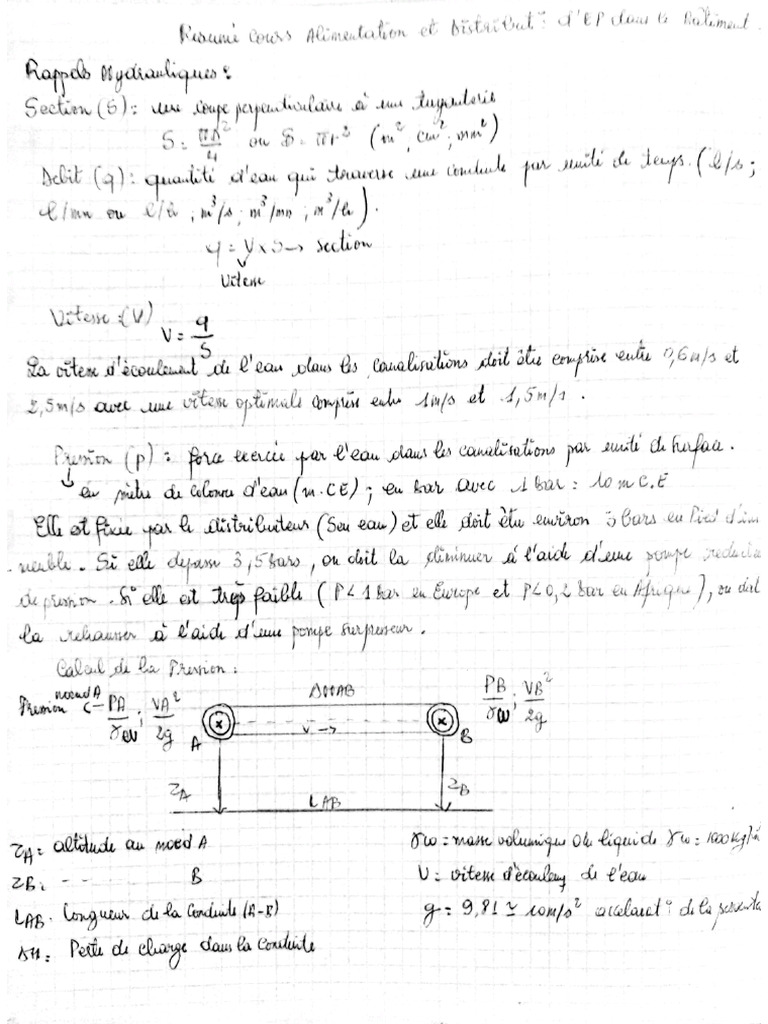 Resumé cours Alimentation et Distribut° d'EP dans le Bâtiment.
Rappels Hydrauliques :
Section (S) : une coupe perpendiculaire à une trajectoire
S = πD²/4 ou S = πr² (m², cm², mm²)
Debit (q) : quantité d'eau qui traverse une conduite par unité de temps. (l/s ;
l/mn ou l/h ; m³/s ; m³/mn ; m³/h).
q = V x S → section
Vitesse
Vitesse : (V)
V = q/S
La vitesse d'écoulement de l'eau dans les canalisations doit être comprise entre 0,6m/s et
2,5m/s avec une vitesse optimale comprise entre 1m/s et 1,5m/s.
Pression (p) : force exercée par l'eau dans les canalisations par unité de surface.
en mètre de colonne d'eau (m.CE) ; en bar avec 1 bar = 10 m C.E
Elle est fixée par le distributeur (Sen eau) et elle doit être environ 3 bars en Pied d'im
meuble. Si elle depasse 3,5 bars, on doit la diminuer à l'aide d'une pompe reductr
de pression. Si elle est très faible (P< 1 bar en Europe et P<0,2 bar en Afrique), on doit
la rehausser à l'aide d'une pompe surpresseur.
Calcul de la Pression :
noeud A
Pression ← PA/γw ; VA²/2g
ΔHAB
PB/γw ; VB²/2g
A V → B
ZA LAB ZB
ZA = altitude au noeud A
γw = masse volumique du liquide γw = 1000Kg/m
ZB = -- B
V = vitesse d'écoulemt de l'eau
LAB = Longueur de la conduite (A-B)
g = 9,81 ≃ 10m/s² accelerat° de la pesanteu
ΔH = Perte de charge dans la conduite